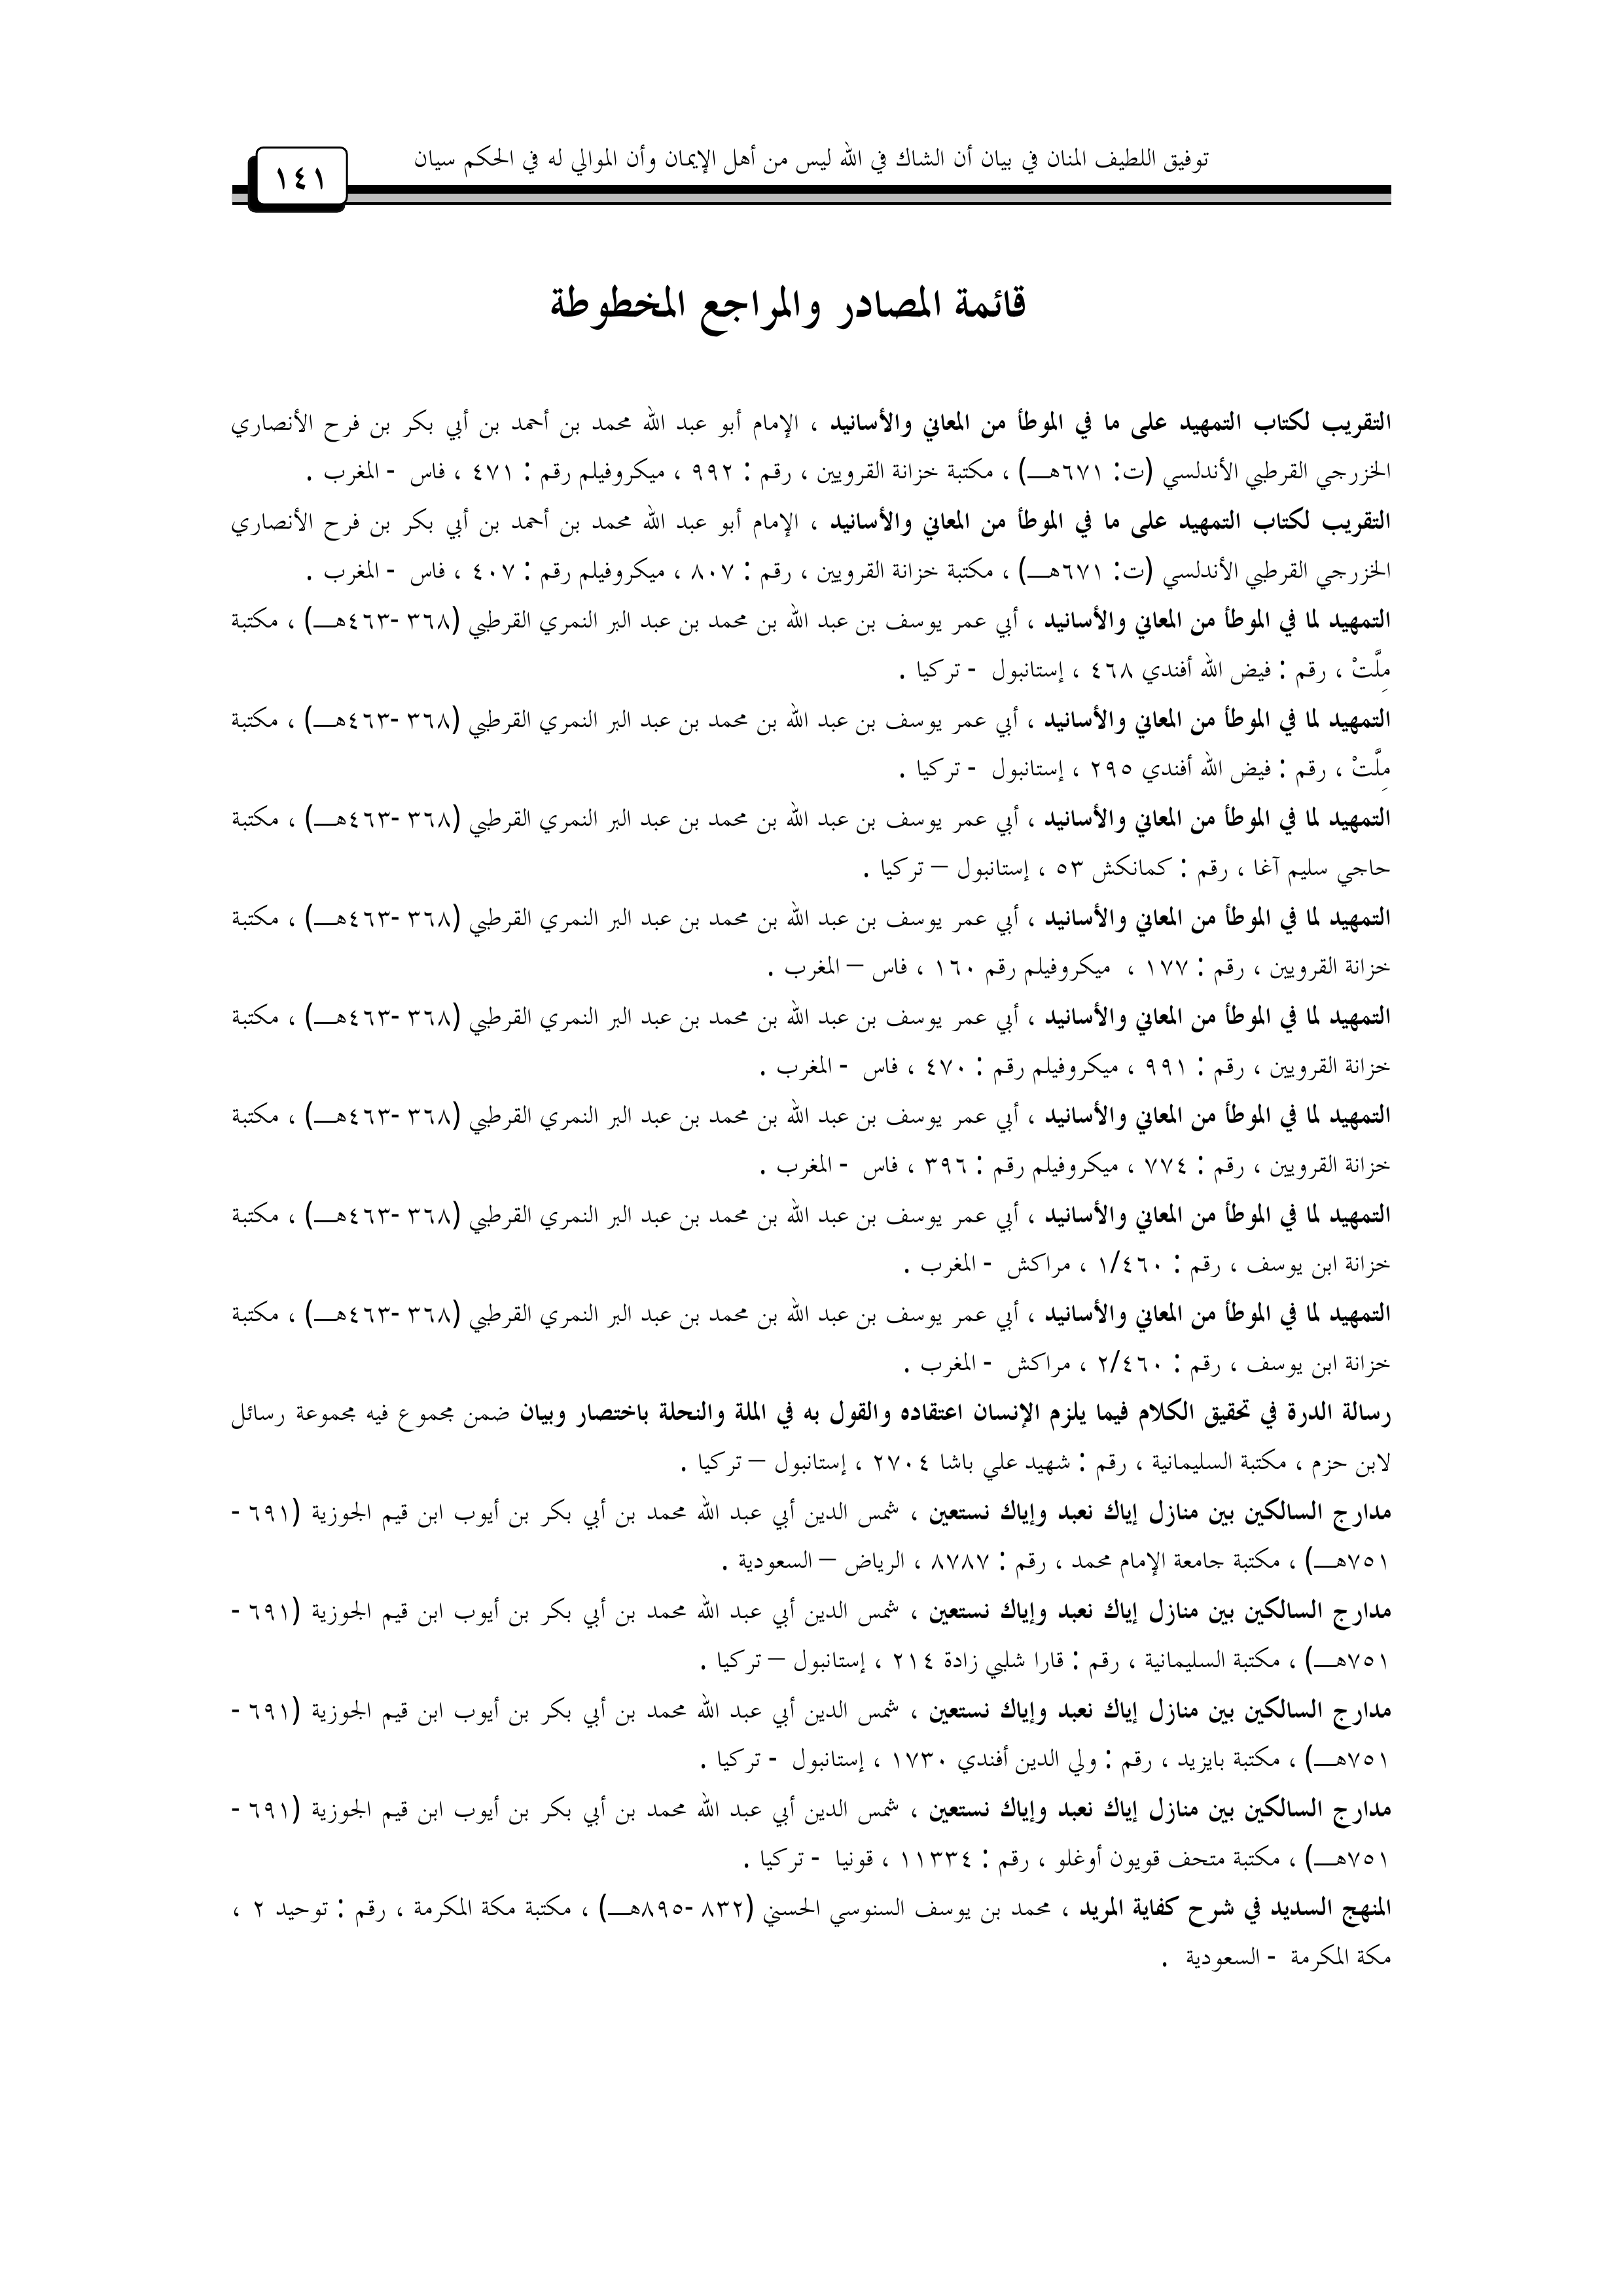 توفيق اللطيف المنان في بيان أن الشاك في الله ليس من أهل الإيمان وأن الموالي له في الحكم سيان
١٤١
قائمة المصادر والمراجع المخطوطة
التقريب لكتاب التمهيد على ما في الموطأ من المعاني والأسانيد ، الإمام أبو عبد الله محمد بن أحمد بن أبي بكر بن فرح الأنصاري
الخزرجي القرطبي الأندلسي (ت: ٦٧١هـ) ، مكتبة خزانة القرويين ، رقم : ٩٩٢ ، ميكروفيلم رقم : ٤٧١ ، فاس - المغرب .
التقريب لكتاب التمهيد على ما في الموطأ من المعاني والأسانيد ، الإمام أبو عبد الله محمد بن أحمد بن أبي بكر بن فرح الأنصاري
الخزرجي القرطبي الأندلسي (ت: ٦٧١هـ) ، مكتبة خزانة القرويين ، رقم : ٨٠٧ ، ميكروفيلم رقم : ٤٠٧ ، فاس - المغرب .
التمهيد لما في الموطأ من المعاني والأسانيد ، أبي عمر يوسف بن عبد الله بن محمد بن عبد البر النمري القرطبي (٣٦٨ -٤٦٣هـ) ، مكتبة
مِلَّتْ ، رقم : فيض الله أفندي ٤٦٨ ، إستانبول - تركيا .
التمهيد لما في الموطأ من المعاني والأسانيد ، أبي عمر يوسف بن عبد الله بن محمد بن عبد البر النمري القرطبي (٣٦٨ -٤٦٣هـ) ، مكتبة
مِلَّتْ ، رقم : فيض الله أفندي ٢٩٥ ، إستانبول - تركيا .
التمهيد لما في الموطأ من المعاني والأسانيد ، أبي عمر يوسف بن عبد الله بن محمد بن عبد البر النمري القرطبي (٣٦٨ -٤٦٣هـ) ، مكتبة
حاجي سليم آغا ، رقم : كمانكش ٥٣ ، إستانبول – تركيا .
التمهيد لما في الموطأ من المعاني والأسانيد ، أبي عمر يوسف بن عبد الله بن محمد بن عبد البر النمري القرطبي (٣٦٨ -٤٦٣هـ) ، مكتبة
خزانة القرويين ، رقم : ١٧٧ ، ميكروفيلم رقم ١٦٠ ، فاس – المغرب .
التمهيد لما في الموطأ من المعاني والأسانيد ، أبي عمر يوسف بن عبد الله بن محمد بن عبد البر النمري القرطبي (٣٦٨ -٤٦٣هـ) ، مكتبة
خزانة القرويين ، رقم : ٩٩١ ، ميكروفيلم رقم : ٤٧٠ ، فاس - المغرب .
التمهيد لما في الموطأ من المعاني والأسانيد ، أبي عمر يوسف بن عبد الله بن محمد بن عبد البر النمري القرطبي (٣٦٨ -٤٦٣هـ) ، مكتبة
خزانة القرويين ، رقم : ٧٧٤ ، ميكروفيلم رقم : ٣٩٦ ، فاس - المغرب .
التمهيد لما في الموطأ من المعاني والأسانيد ، أبي عمر يوسف بن عبد الله بن محمد بن عبد البر النمري القرطبي (٣٦٨ -٤٦٣هـ) ، مكتبة
خزانة ابن يوسف ، رقم : ١/٤٦٠ ، مراكش - المغرب .
التمهيد لما في الموطأ من المعاني والأسانيد ، أبي عمر يوسف بن عبد الله بن محمد بن عبد البر النمري القرطبي (٣٦٨ -٤٦٣هـ) ، مكتبة
خزانة ابن يوسف ، رقم : ٢/٤٦٠ ، مراكش - المغرب .
رسالة الدرة في تحقيق الكلام فيما يلزم الإنسان اعتقاده والقول به في الملة والنحلة باختصار وبيان ضمن مجموع فيه مجموعة رسائل
لابن حزم ، مكتبة السليمانية ، رقم : شهيد علي باشا ٢٧٠٤ ، إستانبول – تركيا .
مدارج السالكين بين منازل إياك نعبد وإياك نستعين ، شمس الدين أبي عبد الله محمد بن أبي بكر بن أيوب ابن قيم الجوزية (٦٩١ -
٧٥١هـ) ، مكتبة جامعة الإمام محمد ، رقم : ٨٧٨٧ ، الرياض – السعودية .
مدارج السالكين بين منازل إياك نعبد وإياك نستعين ، شمس الدين أبي عبد الله محمد بن أبي بكر بن أيوب ابن قيم الجوزية (٦٩١ -
٧٥١هـ) ، مكتبة السليمانية ، رقم : قارا شلبي زادة ٢١٤ ، إستانبول – تركيا .
مدارج السالكين بين منازل إياك نعبد وإياك نستعين ، شمس الدين أبي عبد الله محمد بن أبي بكر بن أيوب ابن قيم الجوزية (٦٩١ -
٧٥١هـ) ، مكتبة بايزيد ، رقم : ولي الدين أفندي ١٧٣٠ ، إستانبول - تركيا .
مدارج السالكين بين منازل إياك نعبد وإياك نستعين ، شمس الدين أبي عبد الله محمد بن أبي بكر بن أيوب ابن قيم الجوزية (٦٩١ -
٧٥١هـ) ، مكتبة متحف قويون أوغلو ، رقم : ١١٣٣٤ ، قونيا - تركيا .
المنهج السديد في شرح كفاية المريد ، محمد بن يوسف السنوسي الحسني (٨٣٢ -٨٩٥هـ) ، مكتبة مكة المكرمة ، رقم : توحيد ٢ ،
مكة المكرمة - السعودية .